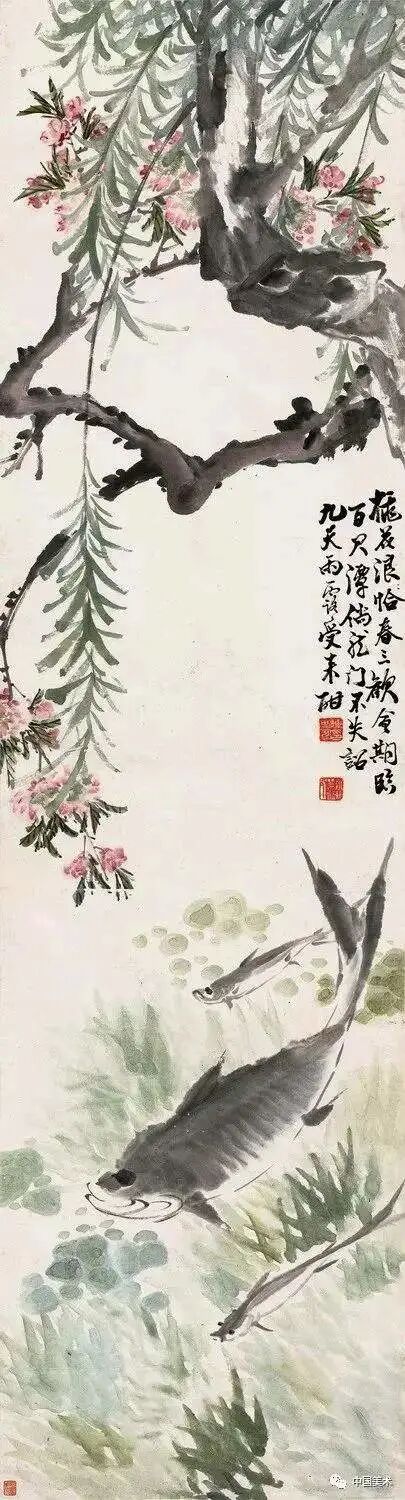 桃花浪恰春三令期臨
百尺潭倘龙门不失詔
九天雨露受来酣
中国美术